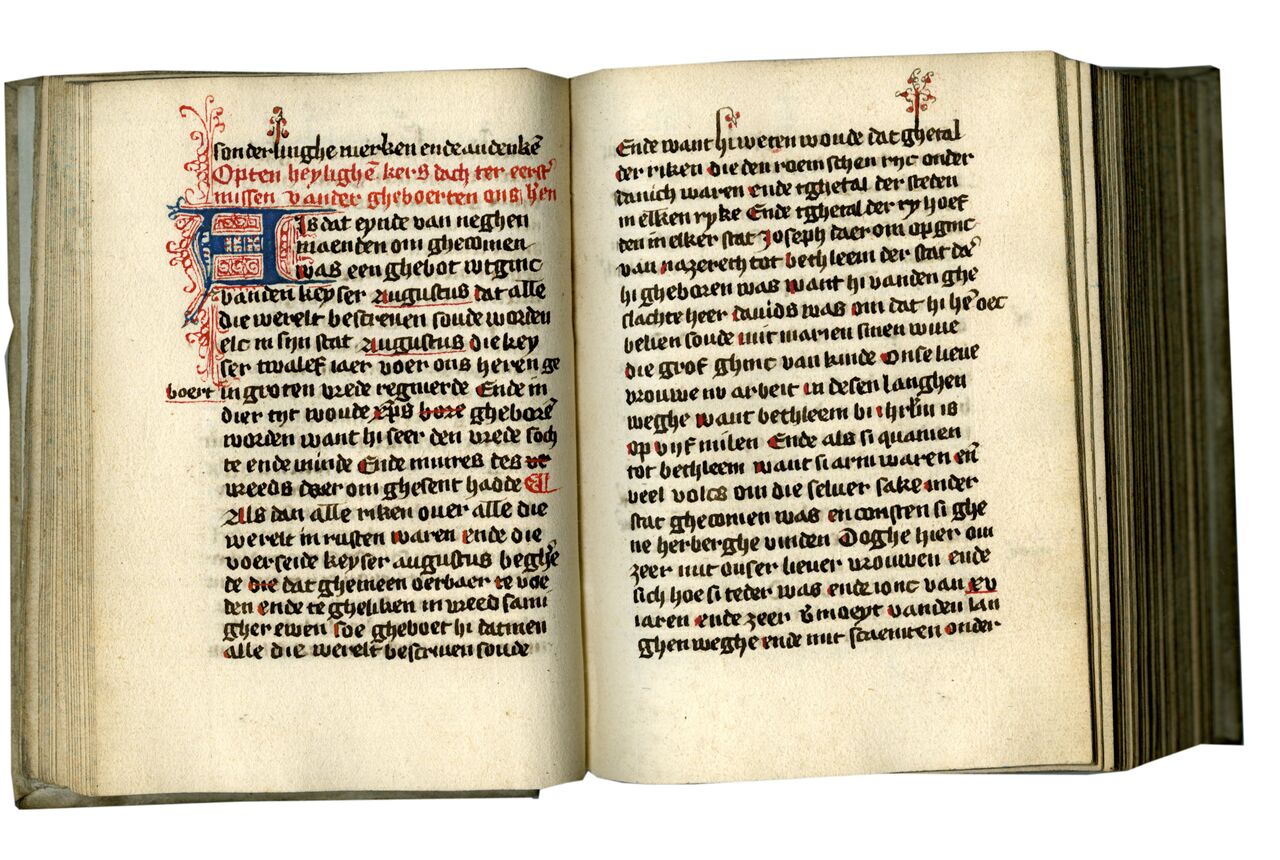 sonderlinghe merken ende andenkē
Opten heylighē kers dach ter eerst᷑
missen vander gheboerten ons hen
Als dat eynde van neghen
maenden om ghecomen
was een ghebot wtginc
vanden keyser augustus dat alle
die werelt bescreuen soude worden
elc in sijn stat augustus die key
ser twalef iaer voer ons heren ge
boert in groten vrede regnierde Ende in
dier tyt woude xp̄s bore gheborē
worden want hi seer den vrede soch
te ende minde Ende mures des
vreeds daer om ghesent hadde
Als dan alle riken ouer alle die
werelt in rusten waren ende die
voerseide keyser augustus beghē
de die dat ghemeen oerbaer te voe
den ende te gheliken in vreed sam
gher ewen soe gheboet hi datmen
alle die werelt bescriuen soude
Ende want hi weten woude dat ghetal
der riken die den roemschen ryc onder
danich waren ende tghetal der steden
in elken ryke Ende tghetal der ty hoef
den in elker stat Joseph daer om op ginc
van nazereth tot bethleem der stat da᷑
hi gheboren was want hi vanden ghe
slachte heer dauids was om dat hi he᷑ oec
belien soude mit marien sinen wiue
die grof ghinc van kinde Onse lieue
vrouwe nv arbeit in desen langhen
weghe want bethleem bi ihrlm̄ is
op vijf milen Ende als si quamen
tot bethleem want si arm waren en̄
veel volcs om die seluer sake inder
stat ghecomen was en consten si ghe
ne herberghe vinden Doghe hier om
zeer mit onser lieuer vrouwen ende
sich hoe si teder was ende ionc van xv
iaren ende zeer v᷑moeyt vanden lan
ghen weghe ende mit scaemten onder